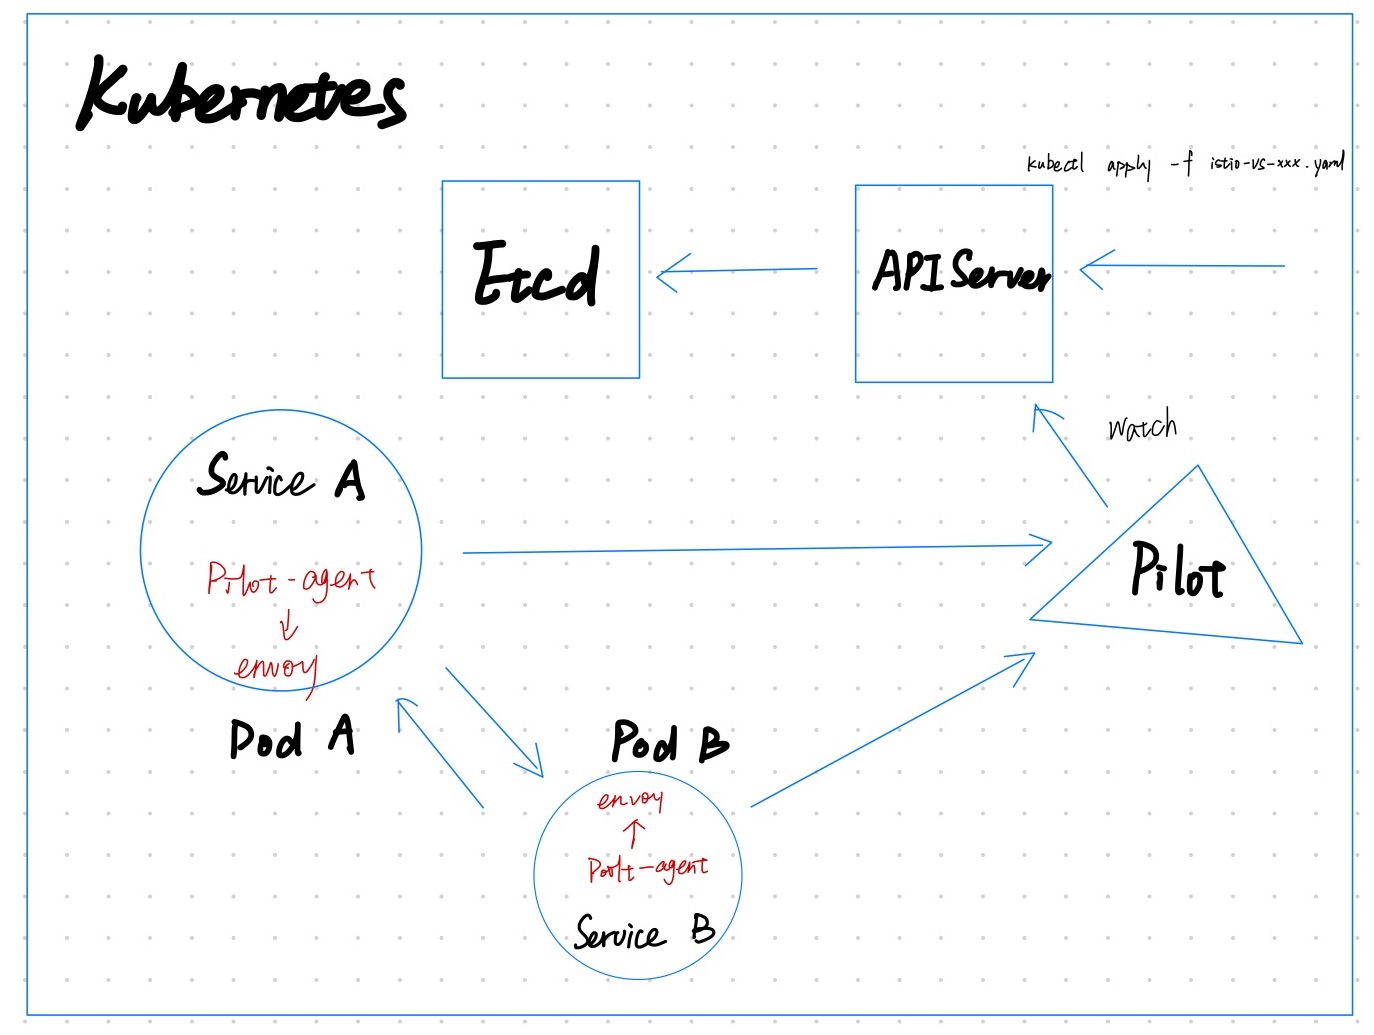 Kubernetes
kubectl apply -f istio-vs-xxx.yaml
Etcd
API Server
Watch
Service A
Pilot-agent
envoy
Pod A
Pilot
Pod B
envoy
Poilt-agent
Service B